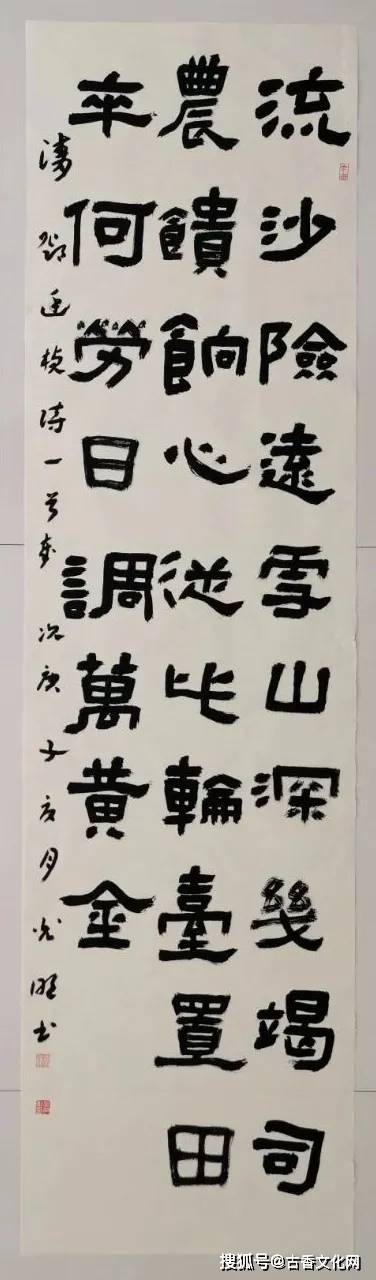 流沙險遠雪山深幾竭司
農饋餉心從此輪臺置田
卒何勞日調萬黃金
清鄧廷楨詩一首歲次庚子亥月光書
搜狐号@古香文化网